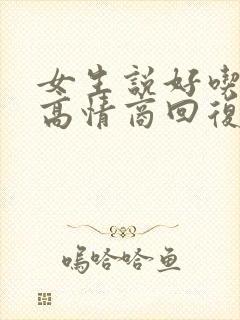 女生説好喫
高情商回復
嗚哈哈鱼